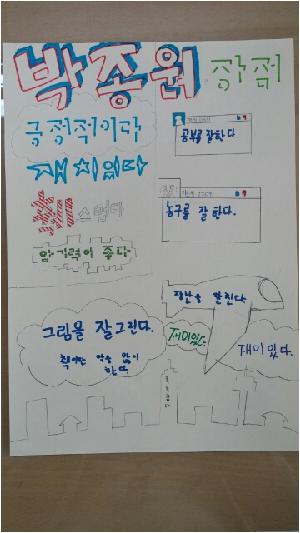 박종원 장점
긍정적이다
재치있다
공부를 잘한다
농구를 잘 한다.
스럽다
암기력이 좋다
장난을 잘친다.
그림을 잘그린다.
재미있다
재미있다.